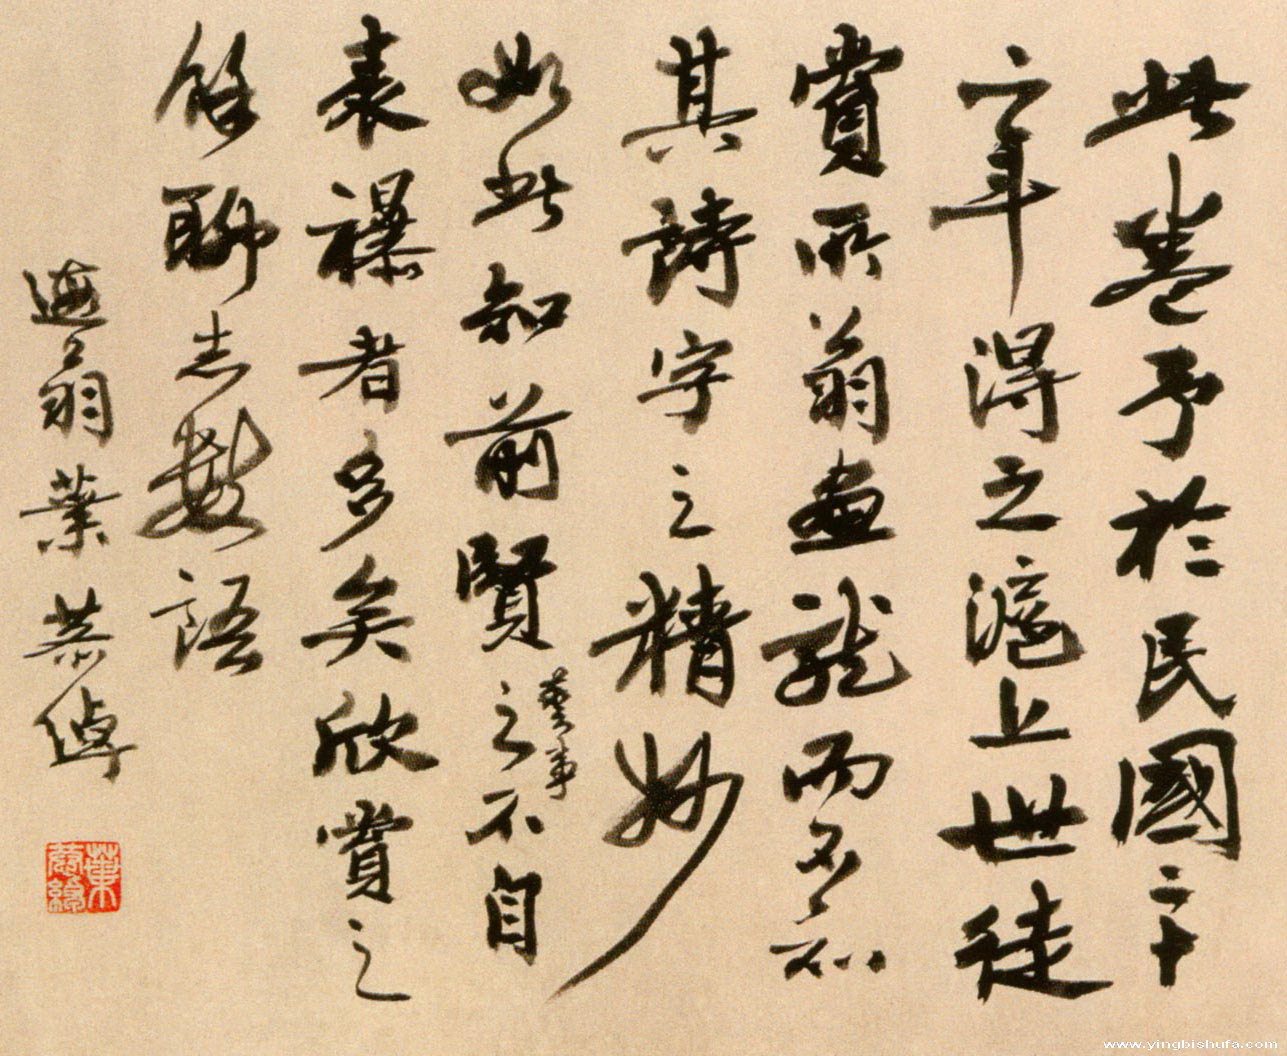 此卷予於民國二十
二年得之滬上世徒
賞所翁畫龍而多不知
其詩字之精妙
如此知前賢之藝事不自
表襮者多矣欣賞之
餘聊志數語
遐翁葉恭綽
葉恭綽
www.yingbishufa.com